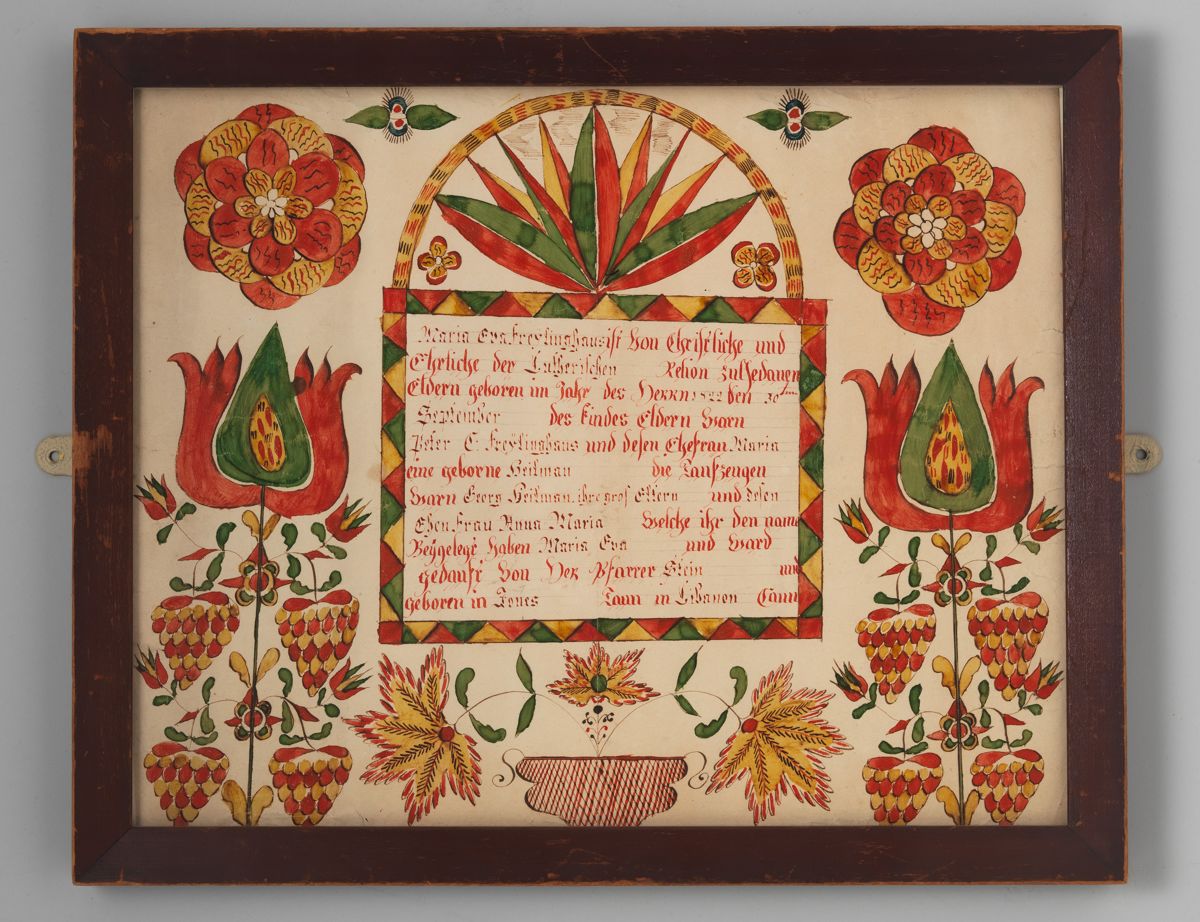 Maria Eva Freylinghaus ist Von Christliche und
Ehrliche der Lutherischen Rehon zulhedanen
Eldern geboren im Jahr des Herrn 1822 den 30ten
September des kindes Eldern Warn
Peter C. Freylinghaus und desen Ehefrau Maria
eine geborne Heilman die Taufzeugen
Warn Georg Heilman, ihre gros Eltern und desen
Ehen Frau Anna Maria Welche ihr den name
Beygelegt haben Maria Eva und Ward
gedauft Von Her Pfarrer Stein und
geboren in Taun in Libanon Caun